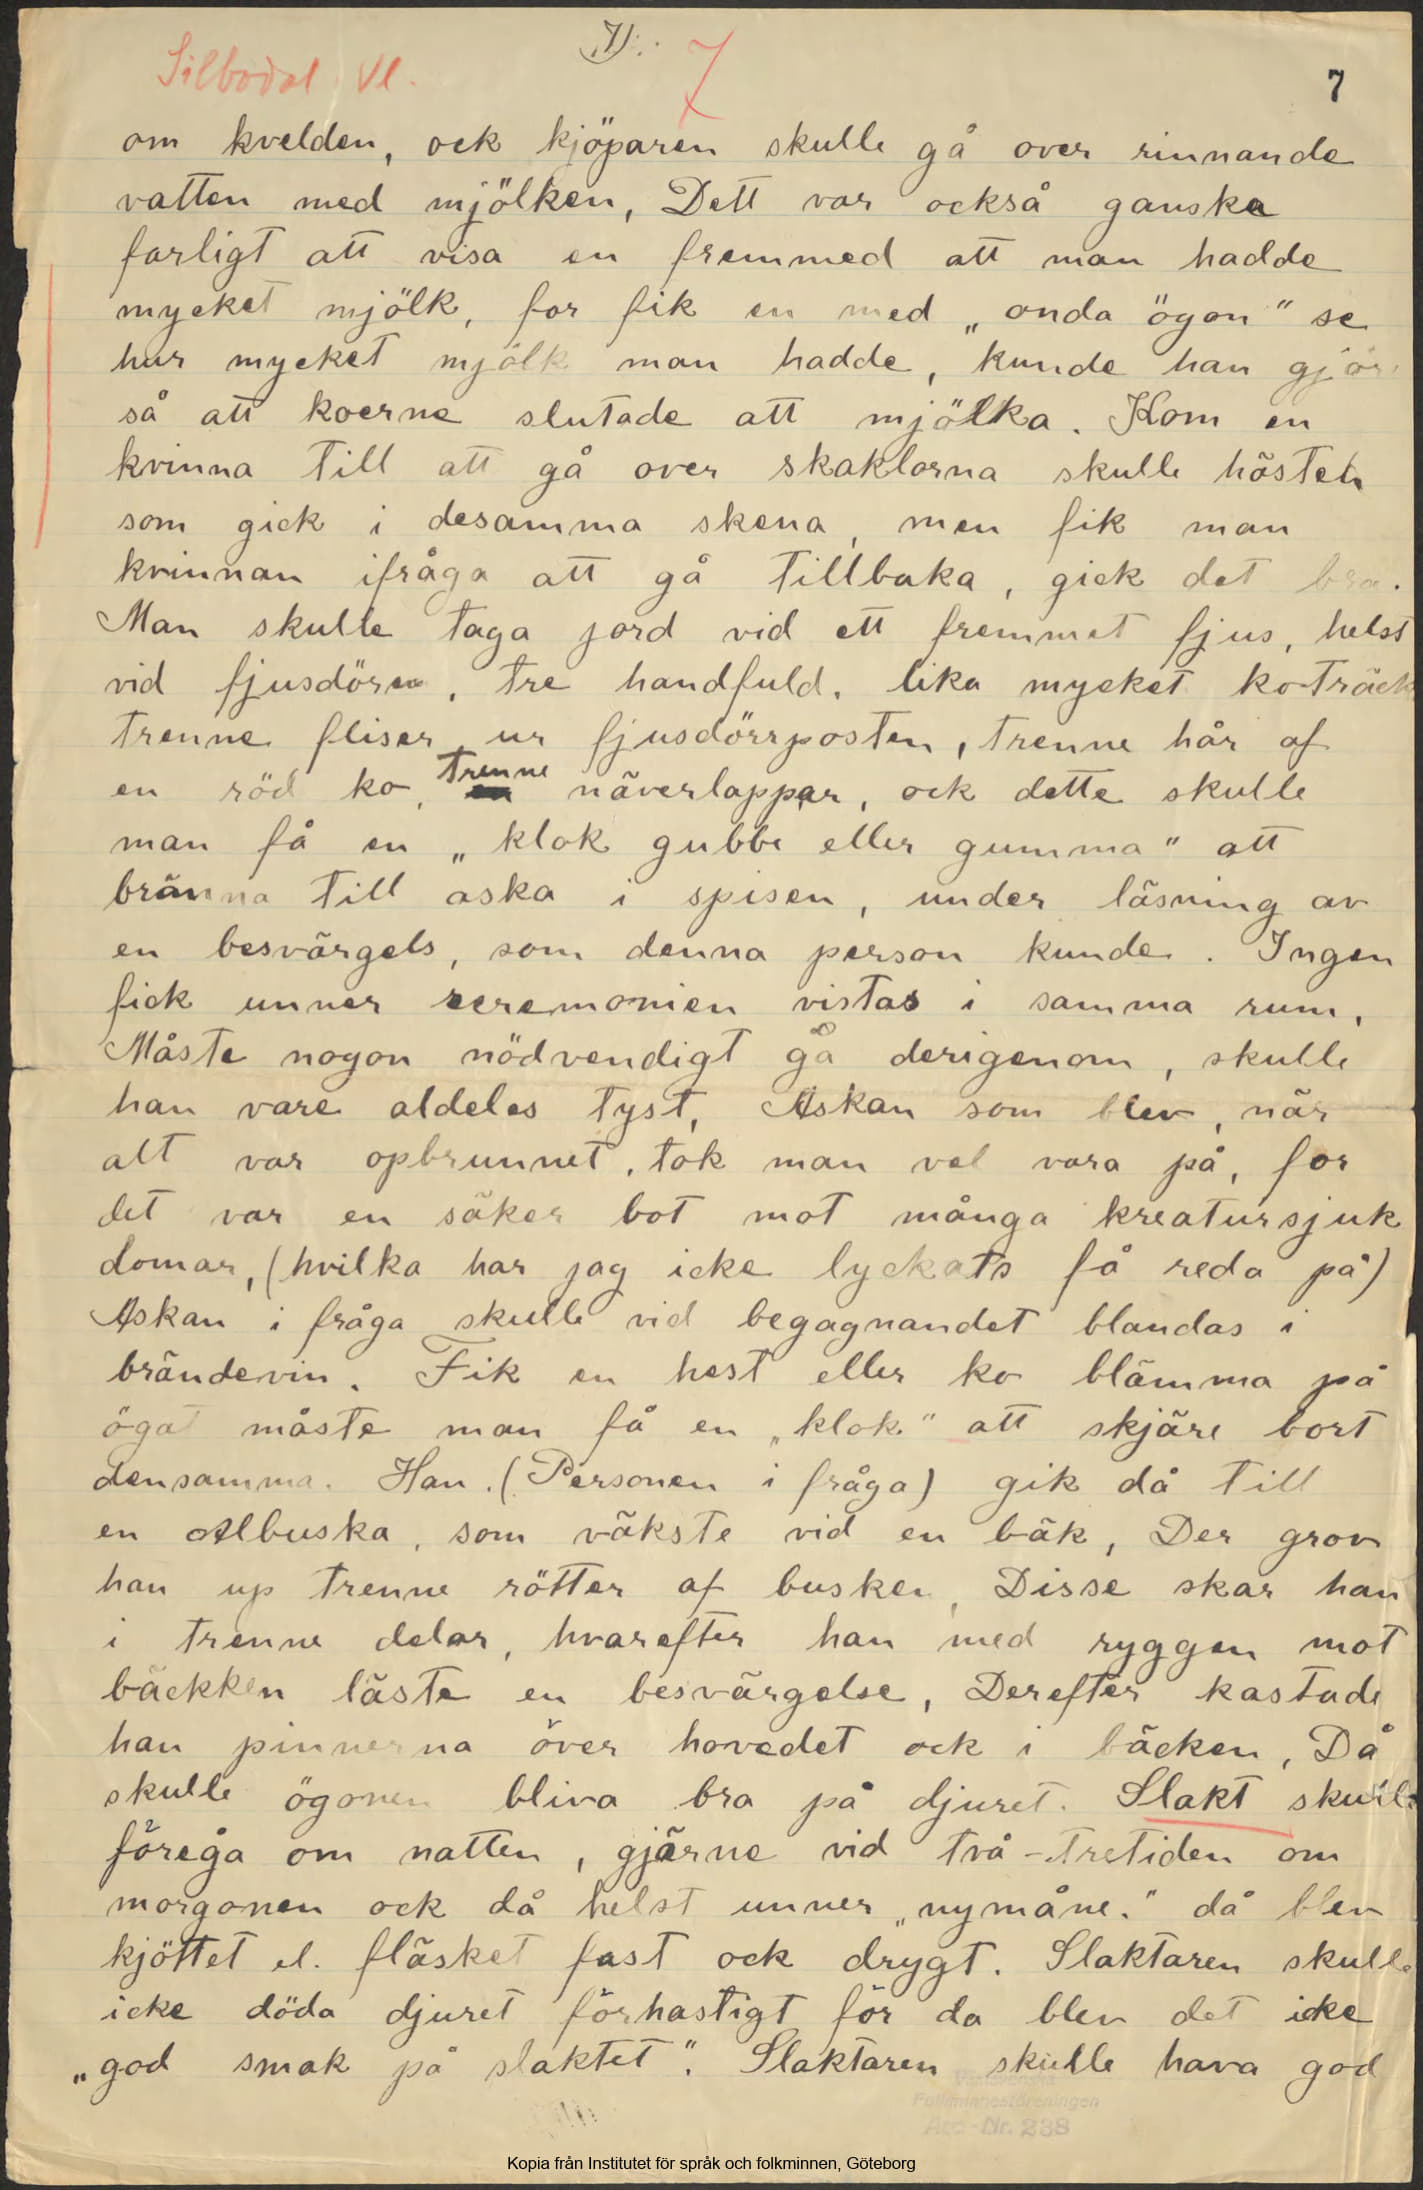 7).
Silbodal Vl.
7
7
om kvelden, ock kjöparen skulle gå over rinnande
vatten med mjölken, Dett var också ganska
farligt att visa en fremmed att man hadde
mycket mjölk, for fik en med „onda ögon" se
hur mycket mjölk man hadde, kunde han gjör
så att koerne slutade att mjölka. Kom en
kvinna till att gå over skaklorna skulle hästen
som gick i desamma skena, men fik man
kvinnan ifråga att gå tillbaka, gick det bra.
Man skulle taga jord vid ett fremmet fjus, helst
vid fjusdören, tre handfuld, lika mycket ko-träck
trenne fliser ur fjusdörrposten, trenne hår af
en röd ko, trenne näverlappar, ock dette skulle
man få en „klok gubbe eller gumma" att
bränna till aska i spisen, under läsning av
en besvärgels, som denna person kunde. Ingen
fick unner ceremonien vistas i samma rum.
Måste nogon nödvendigt gå derigenom, skulle
han vare aldeles tyst, Askan som blev, när
alt var opbrunnet, tok man vel vara på, for
det var en säker bot mot många kreatursjuk
domar, (hvilka har jag icke lyckats få reda på)
Askan i fråga skulle vid begagnandet blandas i
brändevin. Fik en hest eller ko blämma på
ögat måste man få en „klok" att skjäre bort
densamma. Han. (Personen i fråga) gik då till
en Albuska, som väkste vid en bäk, Der grov
han up trenne rötter af busken, Disse skar han
i trenne delar, hvarefter han med ryggen mot
bäckken läste en besvärgelse, Derefter kastade
han pinnerna över hovedet ock i bäcken, Då
skulle ögonen bliva bra på djuret. Slakt skulle
föregå om natten, gjärne vid två-tretiden om
morgonen ock då helst unner „nymåne." då blev
kjöttet el. fläsket fast ock drygt. Slaktaren skulle
icke döda djuret förhastigt för da blev det icke
„god smak på slaktet". Slaktaren skulle hava god
Folkminnesföreningen
Acc-Nr. 238
Kopia från Institutet för språk och folkminnen, Göteborg